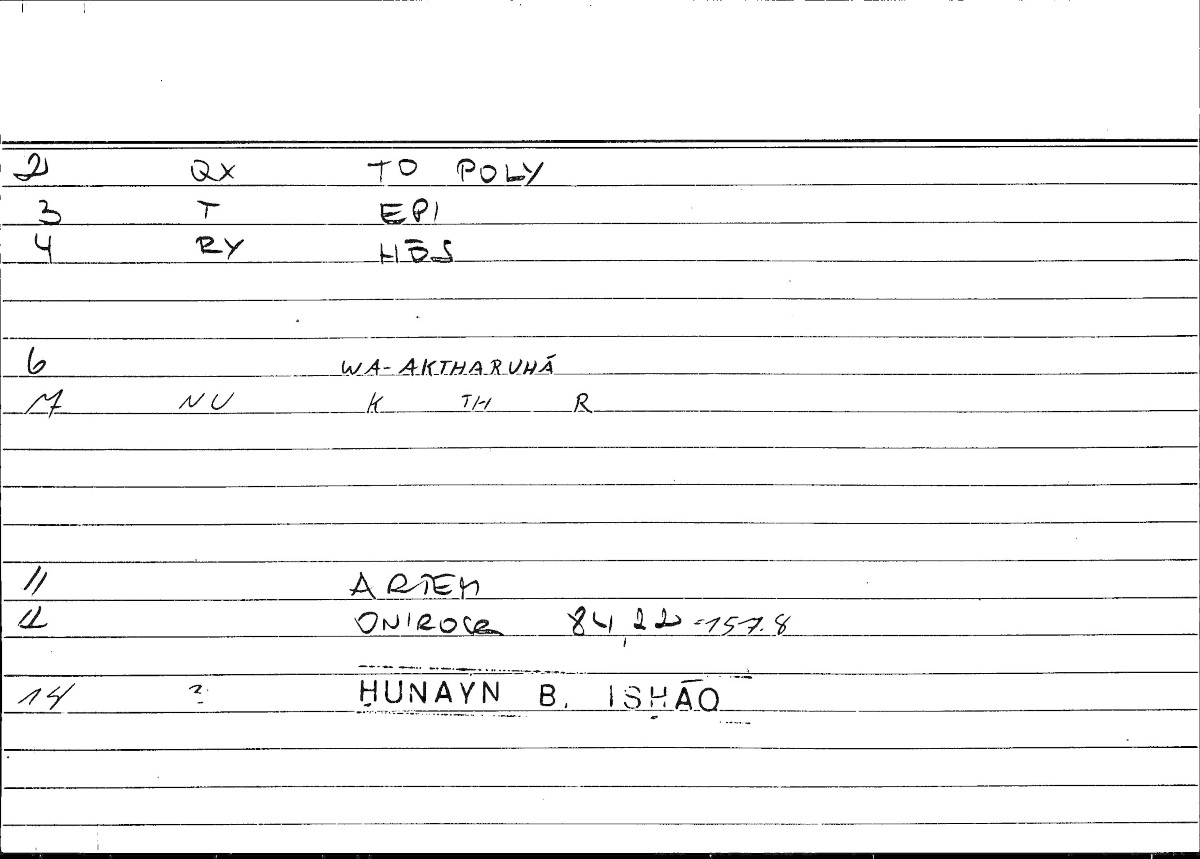 2 QX TO POLY
3 T EPI
4 RY HŌS
6 WA-AKTHARUHĀ
7 NU K TH R
11 ARTEM
12 ONIROCR 84,22=157.8
14 ? ḤUNAYN B. ISḤĀQ